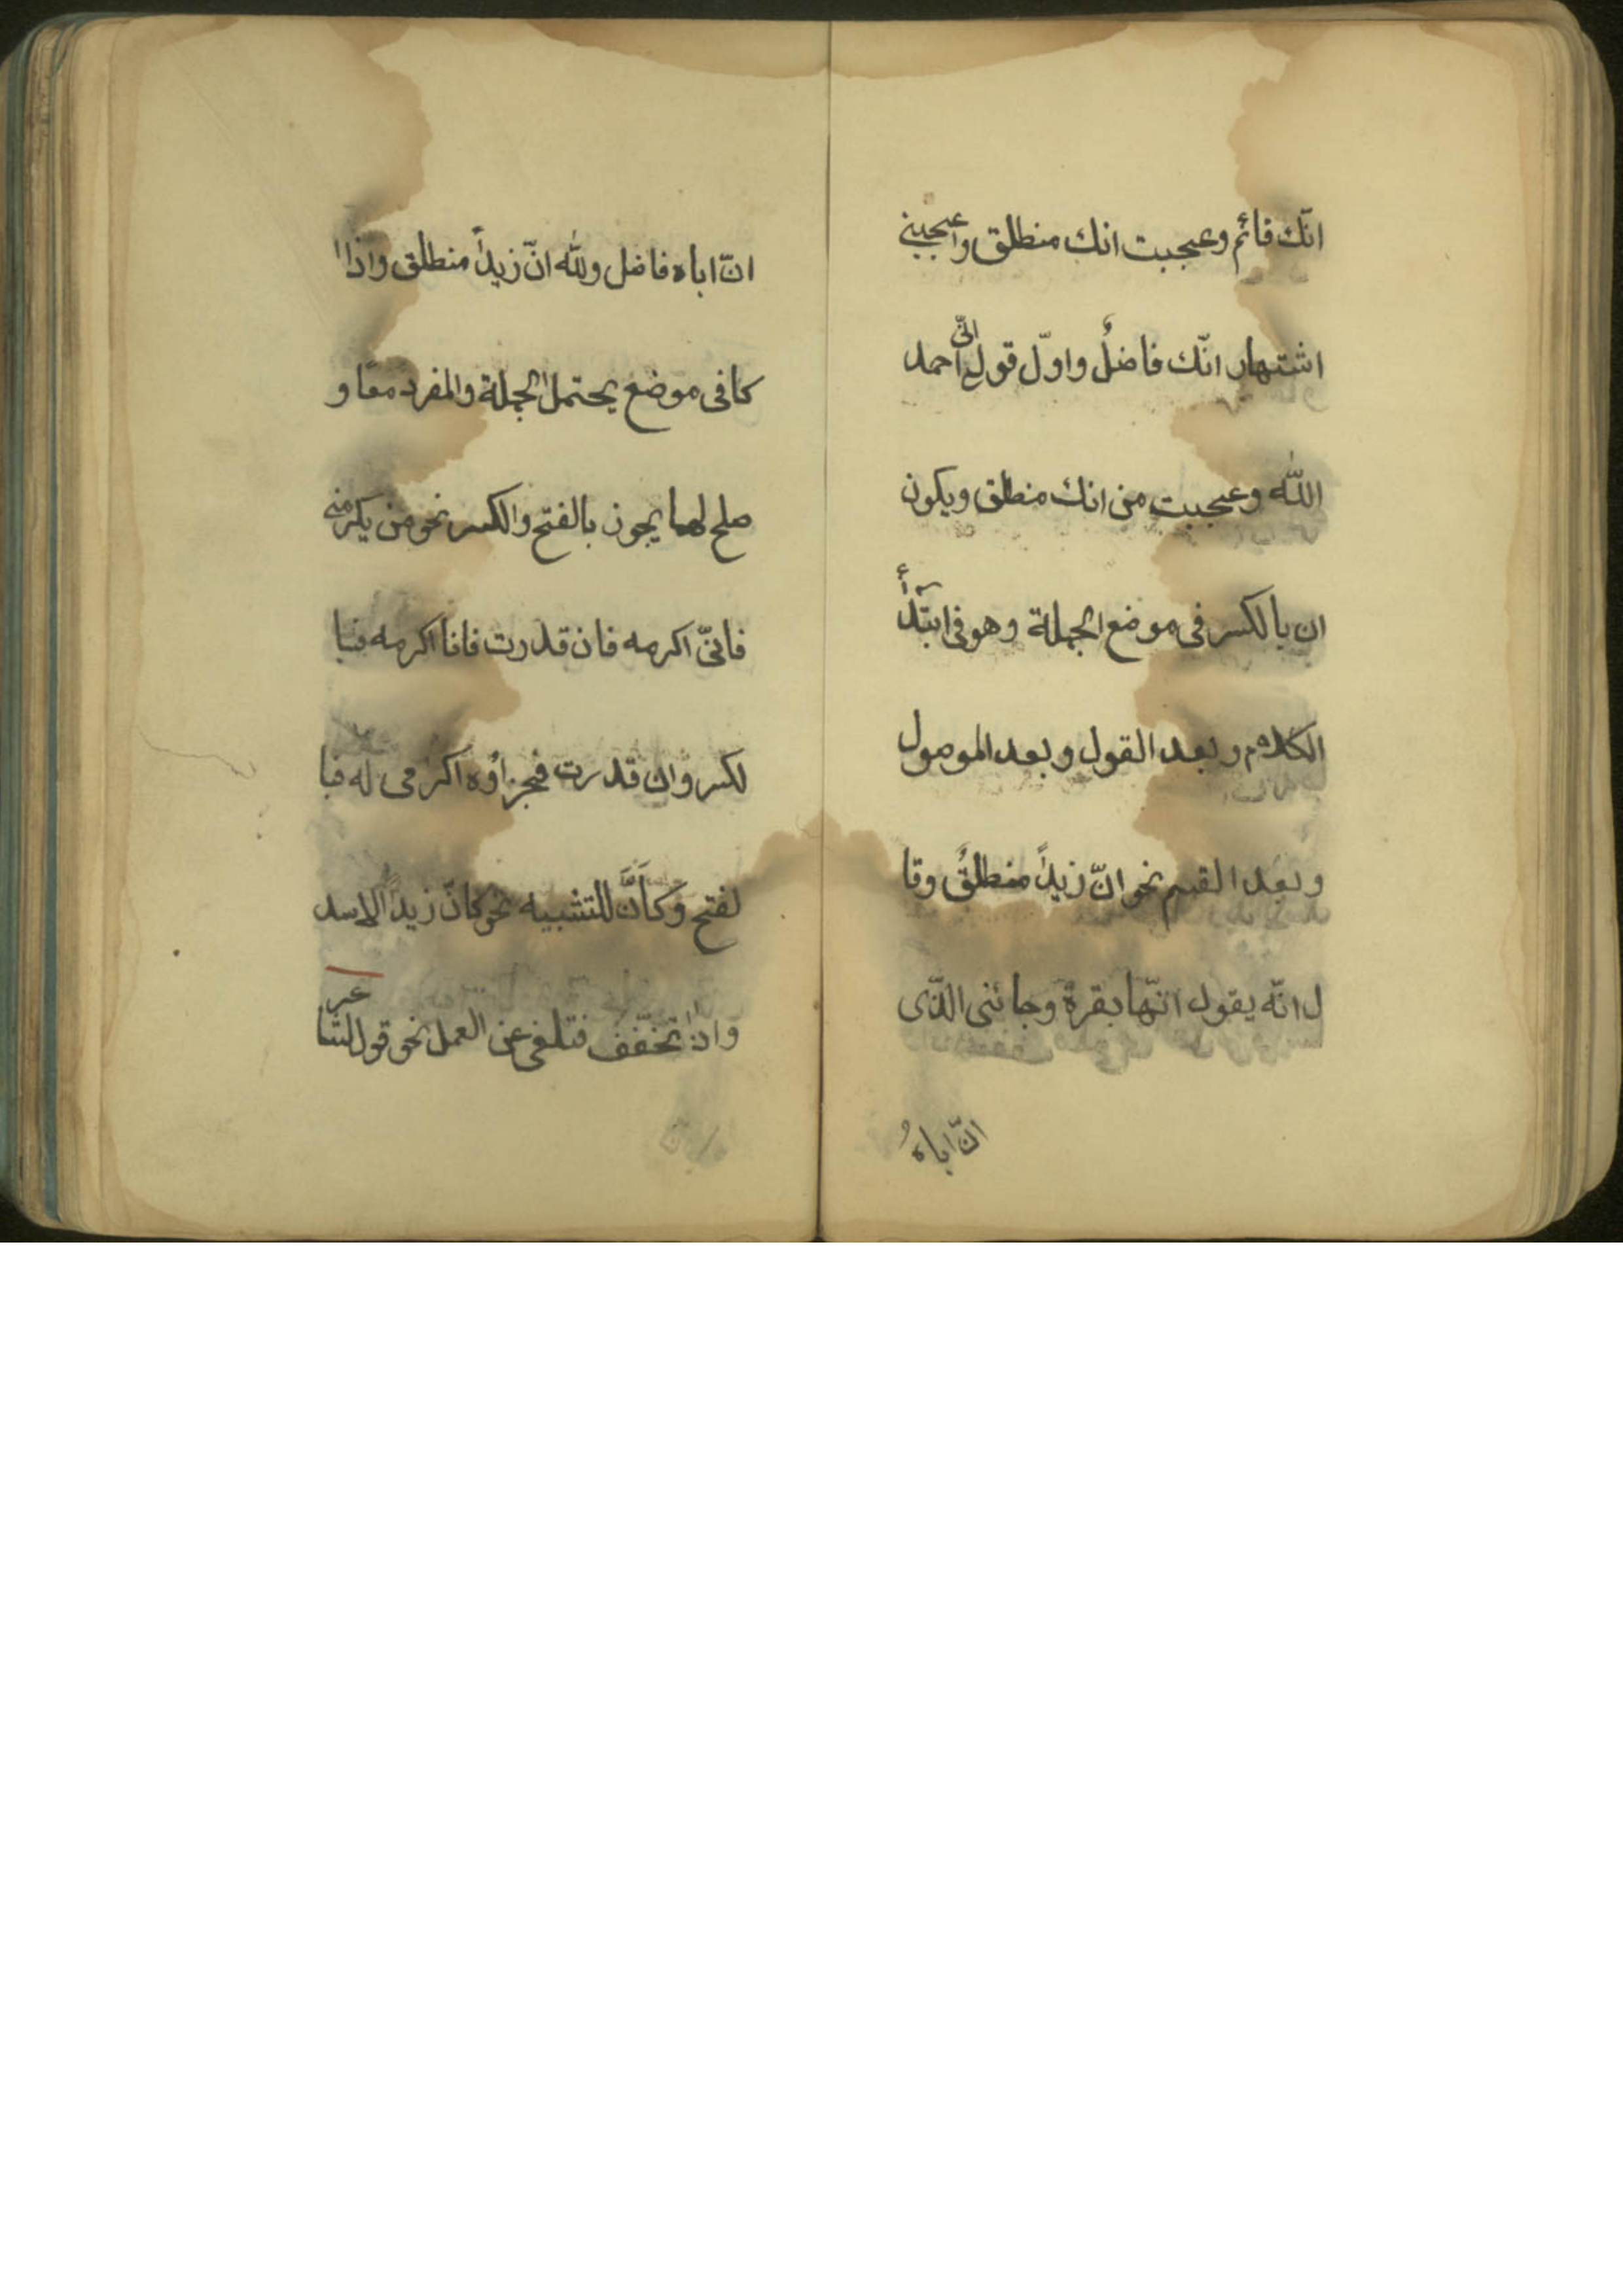 انّك قائم وعجبت انك منطلق واعجبنى
اشتهار انّك فاضلٌ واوّل قولى انّى احمد
اللّه وعجبت من انك منطلق ويكون
ان بالكسر فى موضع الجملة وهو فى ابتدأ
الكلام وبعد القول وبعد الموصول
وبعد القسم نحو انّ زيداً منطلقٌ وقا
ل انّه يقول انّها بقرة وجائنى الذّى
انّ اباهُ
انّ اباه فاضل وللّه انّ زيداً منطلق واذا
كا فى موضع يحتمل الجملة والمفرد معًا و
صلح لهما يجوز بالفتح والكسر نحو من يكرمنى
فانىّ اكرمه فان قدرت فانا اكرمه فبا
لكسر وان قدرت فجزاؤه اكرامى له فبا
لفتح وكاَنَّ للتشبيه نحو كانّ زيداً الاسد
واذا تخفّف فتلغى عن العمل نحو قول الشاعر